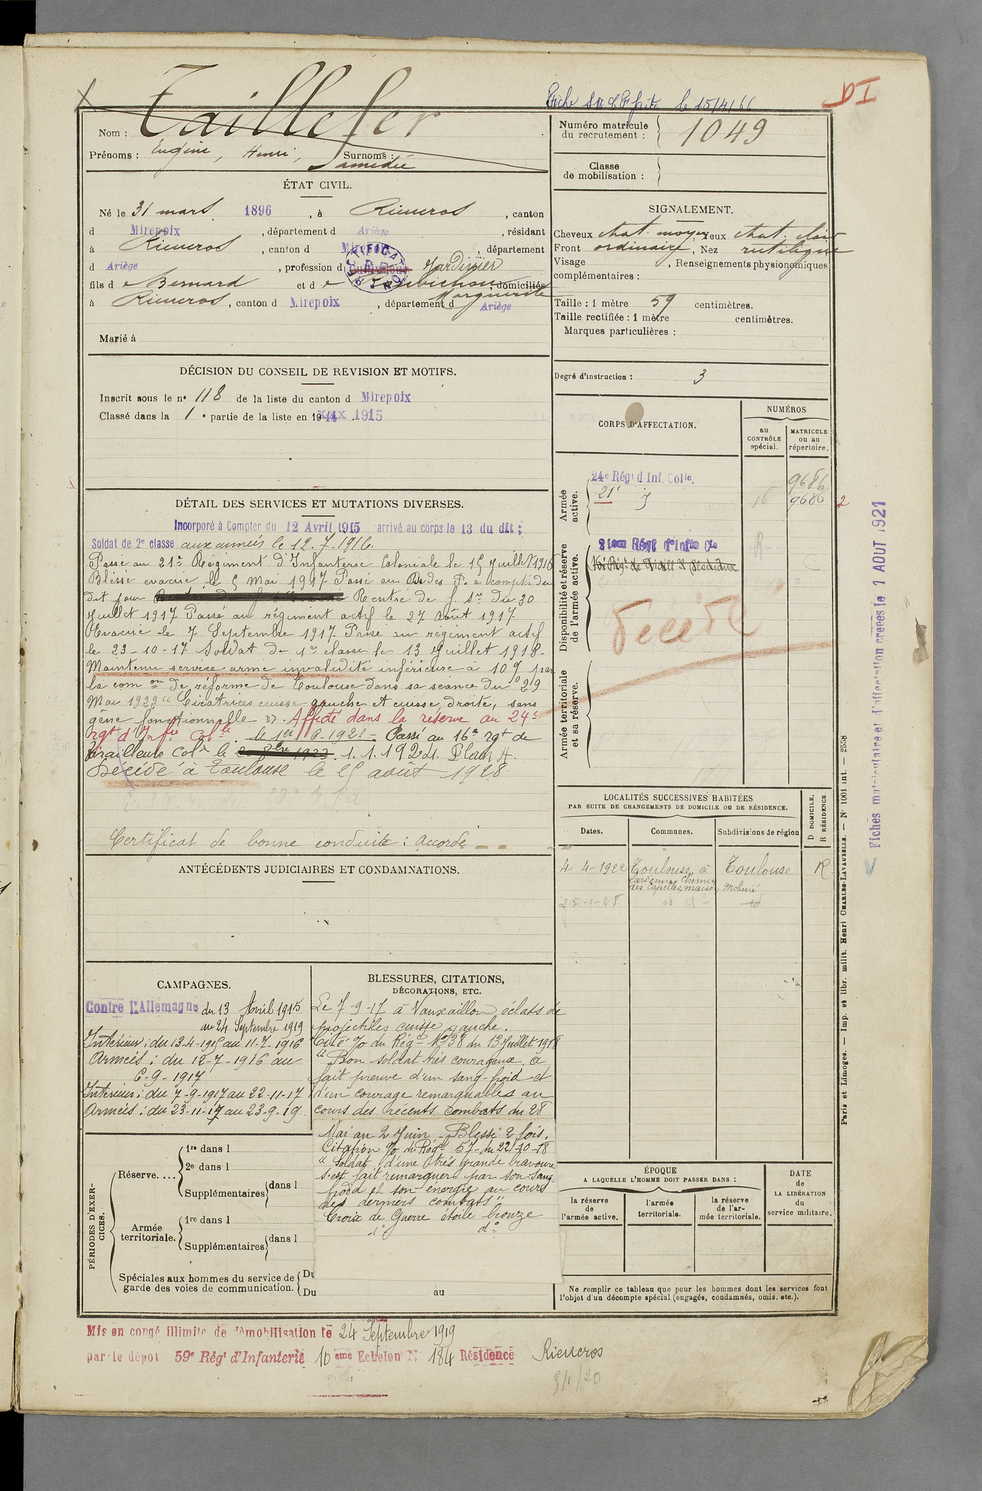 Fiche le 15/4/66
DI
Nom : Taillefer
Prénoms : Eugène, Henri, Surnoms : Amédée
Numéro matricule du recrutement : 1049
Classe de mobilisation :
ÉTAT CIVIL.
Né le 31 mars 1896, à Rieucros, canton
d Mirepoix, département d Ariège, résidant
à Rieucros, canton d Mirepoix, département
d Ariège, profession d Jardinier
fils de Bernard et de Marguerite, domiciliés
à Rieucros, canton d Mirepoix, département d Ariège
Marié à
SIGNALEMENT.
Cheveux chat. moyen, yeux chat. clair
Front ordinaire, Nez rectiligne
Visage , Renseignements physionomiques
complémentaires :
Taille : 1 mètre 59 centimètres.
Taille rectifiée : 1 mètre centimètres.
Marques particulières :
Degré d'instruction : 3
DÉCISION DU CONSEIL DE REVISION ET MOTIFS.
Inscrit sous le n° 118 de la liste du canton d Mirepoix
Classé dans la 1e partie de la liste en 1915
CORPS D'AFFECTATION.
NUMÉROS
AU CONTRÔLE spécial.
MATRICULE ou au répertoire.
Armée active.
24e Régt d'Inf. Colle. 9686
21e 9686
Disponibilité et réserve de l'armée active.
21ème Régt d'Infie Cle
Décédé
Armée territoriale et sa réserve.
DÉTAIL DES SERVICES ET MUTATIONS DIVERSES.
Incorporé à Compter du 12 Avril 1915 arrivé au corps le 13 du dit ;
Soldat de 2e classe aux armées le 12.7.1916.
Passé au 21e Régiment d'Infanterie Coloniale le 15 Juillet 1916
Blessé évacué le 5 Mai 1917 Passé au Dépôt à compter du
dit jour Rentré de du 30
Juillet 1917 Passé au régiment actif le 27 Août 1917.
Evacué le 7 Septembre 1917 Passé au régiment actif
le 23-10-17 Soldat de 1re classe le 13 Juillet 1918.
Maintenu service armé invalidité inférieure à 10% par
la com on de réforme de Toulouse dans sa séance du 29
Mai 1922 "Cicatrices cuisse gauche et cuisse droite, sans
gêne fonctionnelle". Affecté dans la réserve au 24e
rgt d'Infie Colle le 1er 1921. Passé au 16e rgt de
Tirailleurs Colx le 1.1.1924. Plan A.
Décédé à Toulouse le 25 août 1928
Certificat de bonne conduite : accordé
LOCALITÉS SUCCESSIVES HABITÉES
PAR SUITE DE CHANGEMENTS DE DOMICILE OU DE RÉSIDENCE.
Dates. Communes. Subdivisions de région D DOMICILE. R RÉSIDENCE
4-4-1922 Toulouse, à Toulouse R
chemin des Capelles maison Molinié
ANTÉCÉDENTS JUDICIAIRES ET CONDAMNATIONS.
CAMPAGNES.
Contre l'Allemagne du 13 Avril 1915
au 24 Septembre 1919
Intérieur : du 13-4-1915 au 11-7-1916
Armées : du 12-7-1916 au
6-9-1917
Intérieur : du 7-9-1917 au 22-11-17
Armées : du 23-11-17 au 23-9-19
BLESSURES, CITATIONS,
DÉCORATIONS, ETC.
Le 7-9-17 à Vauxaillon, éclats de
projectiles cuisse gauche.
Cité à l'O/ du Régt N° 38 du 13 Juillet 1918
"Bon soldat très courageux, a
fait preuve d'un sang-froid et
d'un courage remarquables au
cours des récents combats du 28
Mai au 2 Juin. Blessé 2 fois.
Citation O/ du Régt 57 du 22-10-18
"Soldat d'une très grande bravoure
s'est fait remarquer par son sang
froid et son énergie au cours
des derniers combats"
Croix de Guerre étoile bronze
d° d°
PÉRIODES D'EXERCICES.
Réserve.... 1re dans l
2e dans l
Supplémentaires dans l
Armée territoriale. 1re dans l
Supplémentaires dans l
Spéciales aux hommes du service de garde des voies de communication. Du
Du au
ÉPOQUE
A LAQUELLE L'HOMME DOIT PASSER DANS :
la réserve de l'armée active.
l'armée territoriale.
la réserve de l'armée territoriale.
DATE DE LA LIBÉRATION du service militaire.
Ne remplir ce tableau que pour les hommes dont les services font
l'objet d'un décompte spécial (engagés, condamnés, omis, etc.).
Mis en congé illimité de démobilisation le 24 Septembre 1919
par le dépôt 59e Régt d'Infanterie 10 eme Echelon N° 184 Résidence Rieucros
Fiches matriculaire et d'affectation créées le 1 AOUT 1921
Paris et Limoges. — Imp. et libr. milit. Henri CHARLES-LAVAUZELLE. — N° 1001 int. — 2558